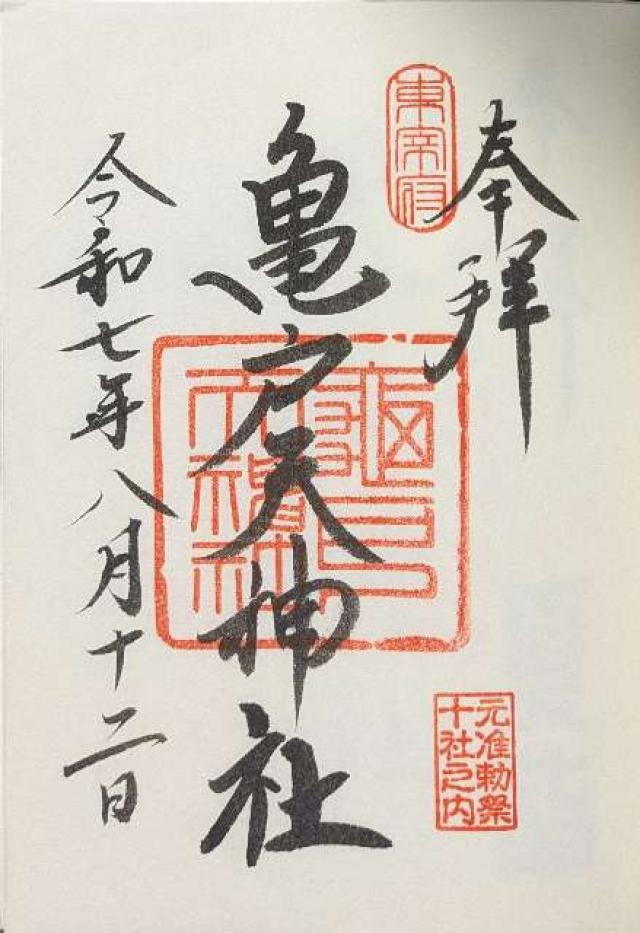 奉拝
東宰府
亀戸天神社
令和七年八月十二日
元准勅祭
十社之内